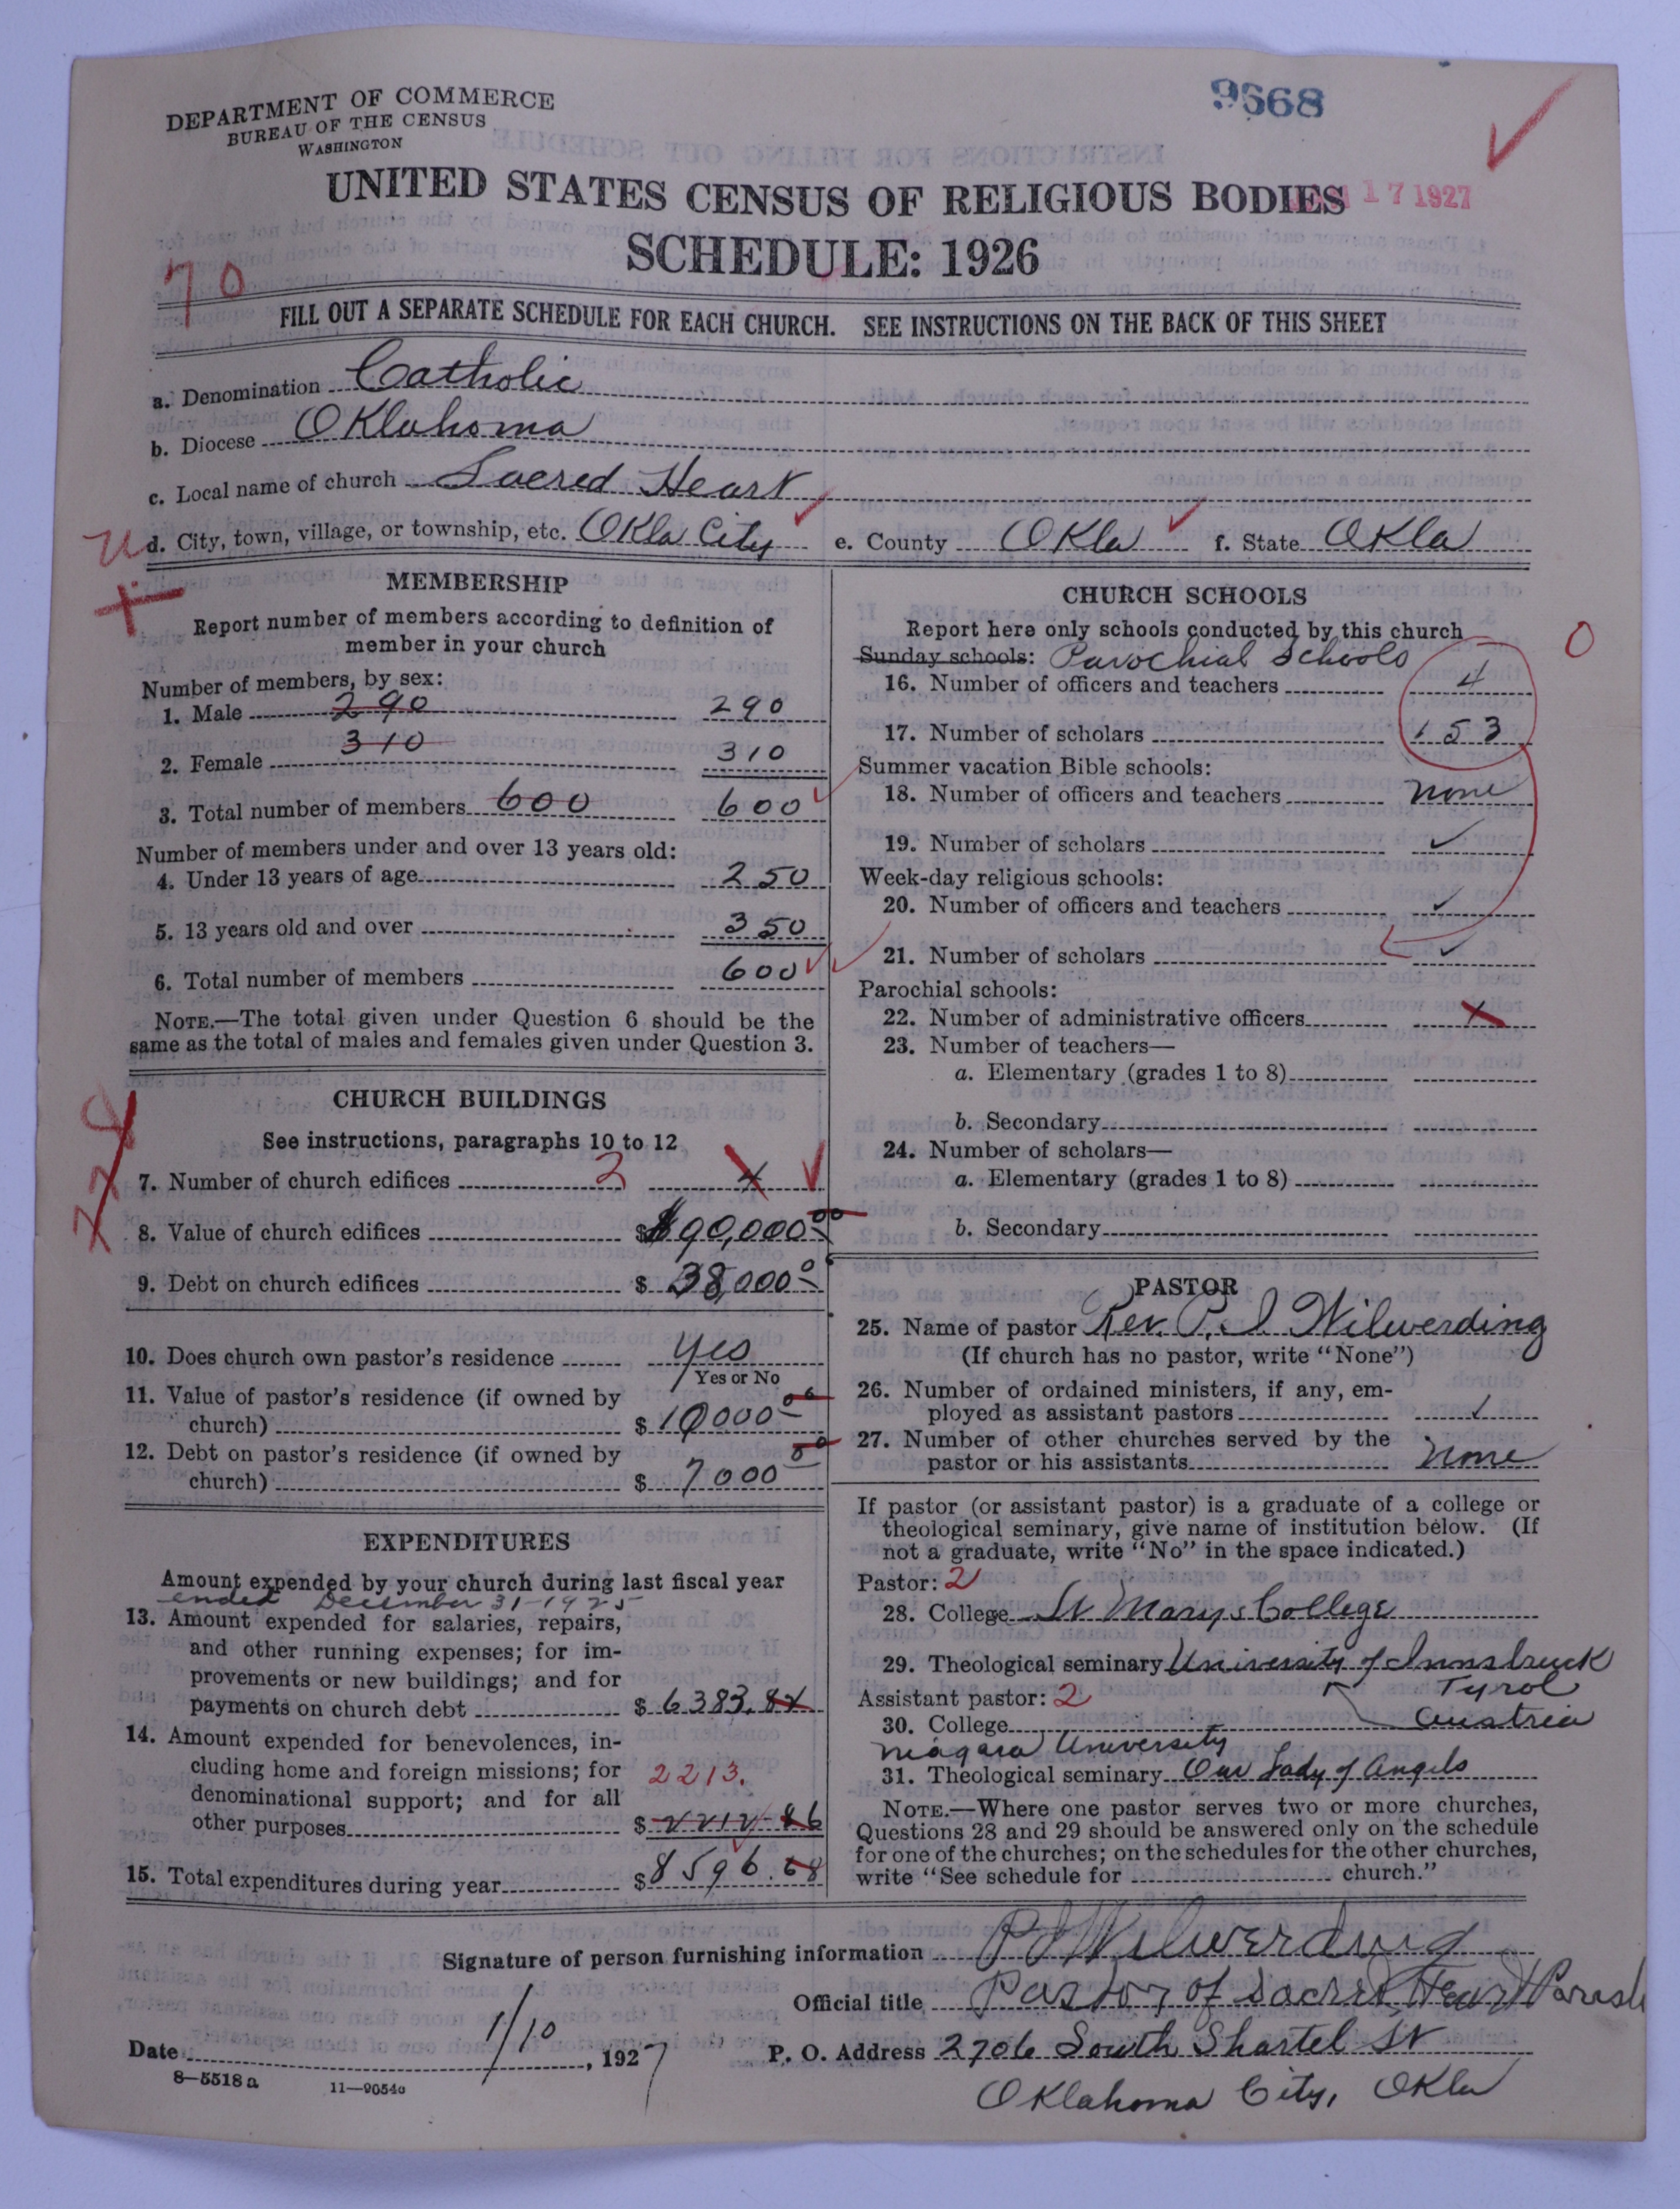 DEPARTMENT OF COMMERCE
BUREAU OF THE CENSUS
WASHINGTON
9668
17 1927
UNITED STATES CENSUS OF RELIGIOUS BODIES
SCHEDULE: 1926
70
FILL OUT A SEPARATE SCHEDULE FOR EACH CHURCH. SEE INSTRUCTIONS ON THE BACK OF THIS SHEET
a. Denomination Catholic
b. Diocese Oklahoma
c. Local name of church Sacred Heart
d. City, town, village, or township, etc. Okla City e. County Okla f. State Okla
MEMBERSHIP
Report number of members according to definition of
member in your church
Number of members, by sex:
1. Male 290 290
2. Female 310 310
3. Total number of members 600 600
Number of members under and over 13 years old:
4. Under 13 years of age 250
5. 13 years old and over 350
6. Total number of members 600
NOTE.—The total given under Question 6 should be the
same as the total of males and females given under Question 3.
CHURCH BUILDINGS
See instructions, paragraphs 10 to 12
7. Number of church edifices 2
8. Value of church edifices $90,000 00
9. Debt on church edifices $ 38,000 0
10. Does church own pastor's residence Yes
Yes or No
11. Value of pastor's residence (if owned by
church) $10000 00
12. Debt on pastor's residence (if owned by
church) $ 7000 00
EXPENDITURES
Amount expended by your church during last fiscal year
ended December 31-1925
13. Amount expended for salaries, repairs,
and other running expenses; for im-
provements or new buildings; and for
payments on church debt $ 6383.82
14. Amount expended for benevolences, in-
cluding home and foreign missions; for
denominational support; and for all
other purposes 2213. $ 2212-86
15. Total expenditures during year $8596.68
CHURCH SCHOOLS
Report here only schools conducted by this church
Sunday schools: Parochial Schools 0
16. Number of officers and teachers 4
17. Number of scholars 153
Summer vacation Bible schools:
18. Number of officers and teachers none
19. Number of scholars
Week-day religious schools:
20. Number of officers and teachers
21. Number of scholars
Parochial schools:
22. Number of administrative officers
23. Number of teachers—
a. Elementary (grades 1 to 8)
b. Secondary
24. Number of scholars—
a. Elementary (grades 1 to 8)
b. Secondary
PASTOR
25. Name of pastor Rev. P. J. Wilwerding
(If church has no pastor, write "None")
26. Number of ordained ministers, if any, em-
ployed as assistant pastors 1
27. Number of other churches served by the
pastor or his assistants none
If pastor (or assistant pastor) is a graduate of a college or
theological seminary, give name of institution below. (If
not a graduate, write "No" in the space indicated.)
Pastor: 2
28. College St Marys College
29. Theological seminary University of Innsbruck
Tyrol
Assistant pastor: 2
Austria
30. College
Niagara University
31. Theological seminary Our Lady of Angels
NOTE.—Where one pastor serves two or more churches,
Questions 28 and 29 should be answered only on the schedule
for one of the churches; on the schedules for the other churches,
write "See schedule for church."
Signature of person furnishing information P J Wilwerding
Official title Pastor of Sacred Heart Parash
Date 1/10, 1927 P. O. Address 2706 South Shartel St
8—5518a 11—9054a
Oklahoma City, Okla